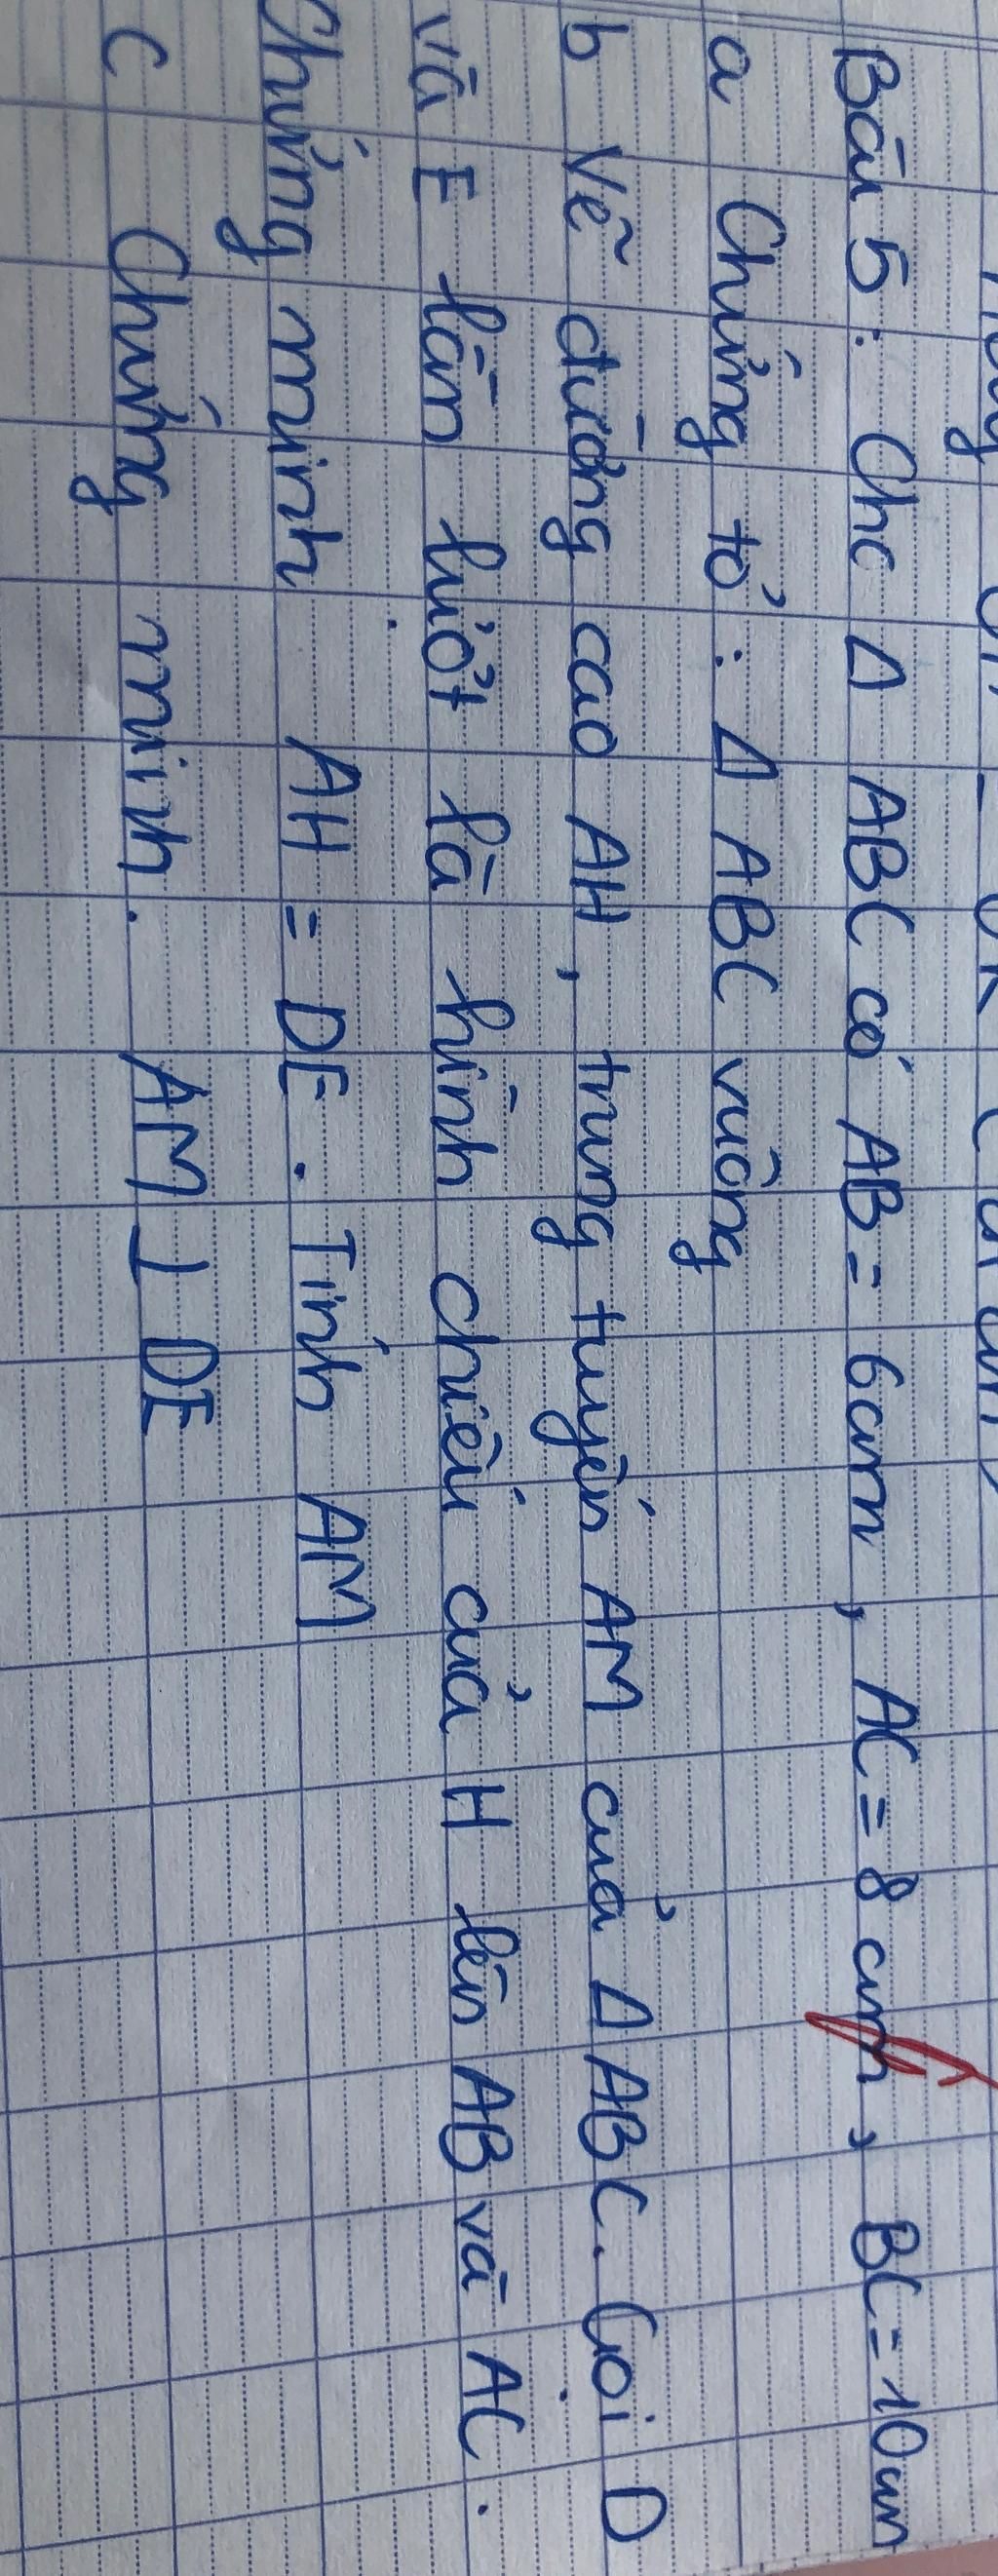 Bài 5: Cho Δ ABC có AB = 6cm, AC = 8cm, BC = 10cm
a Chứng tỏ: Δ ABC vuông
b Vẽ đường cao AH, trung tuyến AM của Δ ABC. Gọi D
và E lần lượt là hình chiếu của H lên AB và AC.
Chứng minh AH = DE. Tính AM
c Chứng minh. AM ⊥ DE